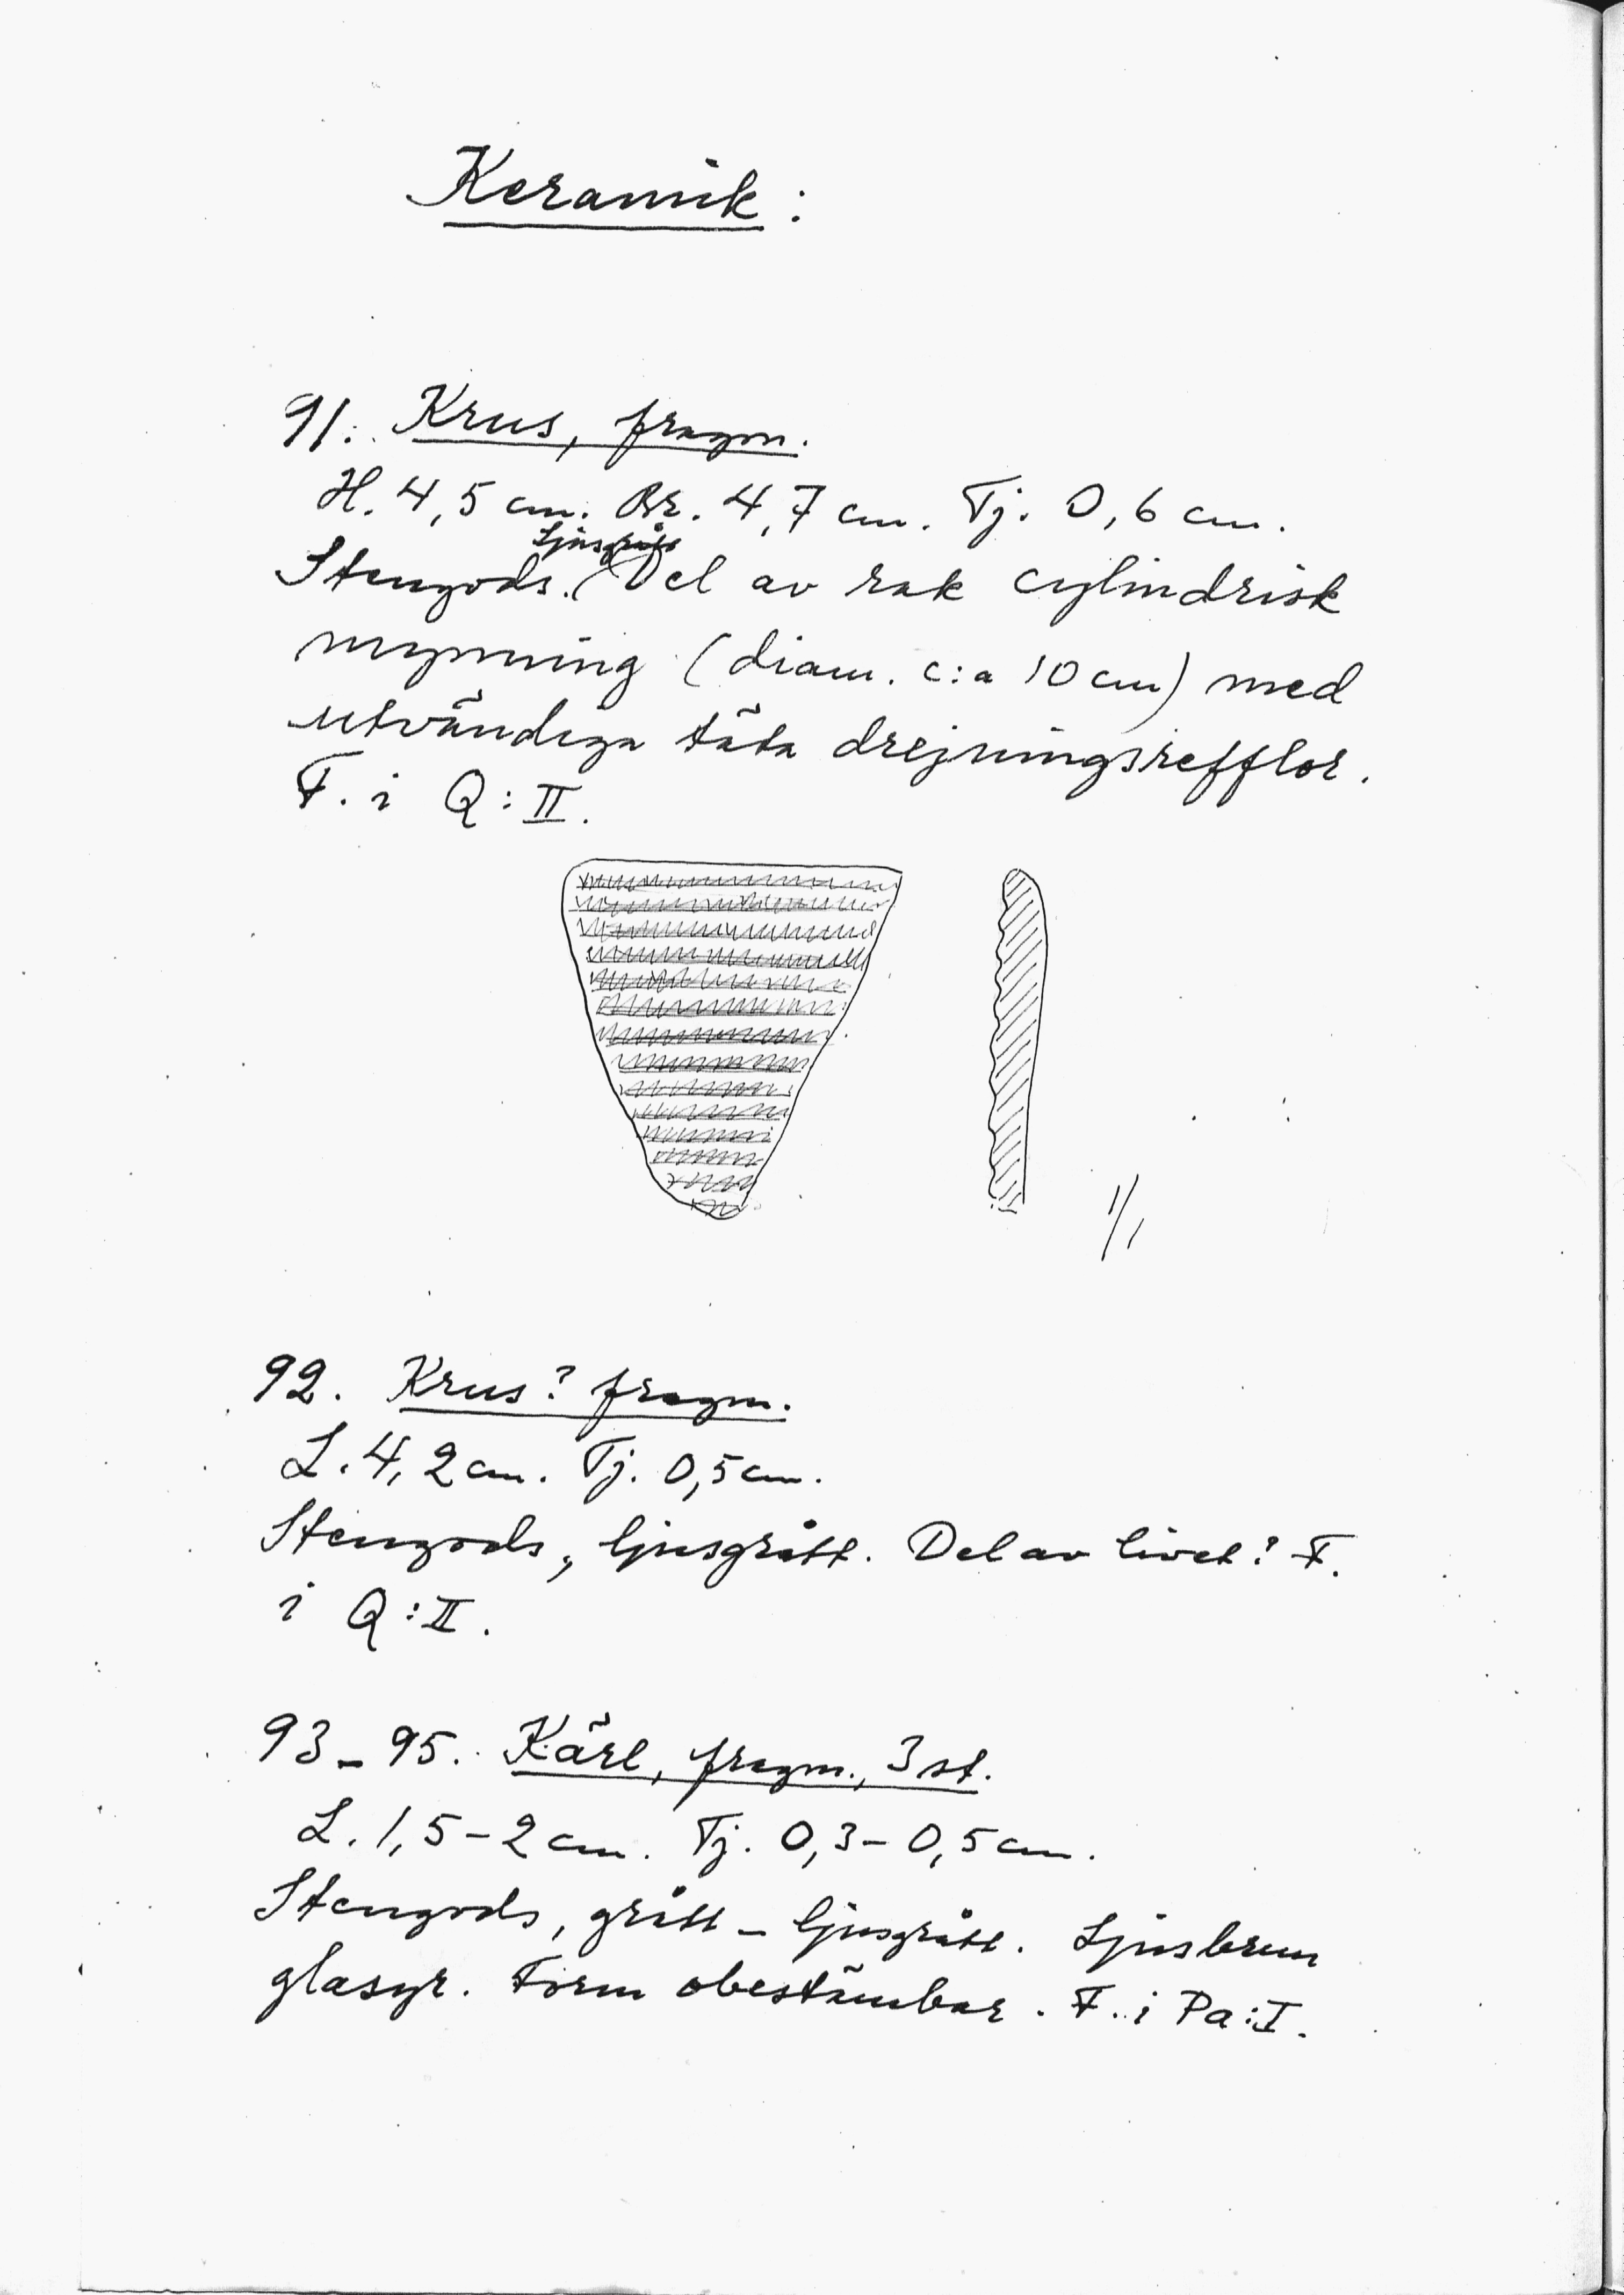 Keramik:
91. Krus, fragm.
H. 4,5 cm. Br. 4,7 cm. Tj. 0,6 cm.
Ljusgrått
Stengods. Del av rak cylindrisk
mynning (diam. c:a 10 cm) med
utvändiga täta drejningsrefflor.
F. i Q:II.
1/1
92. Krus? fragm.
L. 4,2 cm. Tj. 0,5 cm.
Stengods, ljusgrått. Del av livet? F.
i Q:II.
93-95. Kärl, fragm., 3 st.
L. 1,5-2 cm. Tj. 0,3-0,5 cm.
Stengods, grått - ljusgrått. Ljusbrun
glasyr. Form obestämbar. F. i Pa:I.